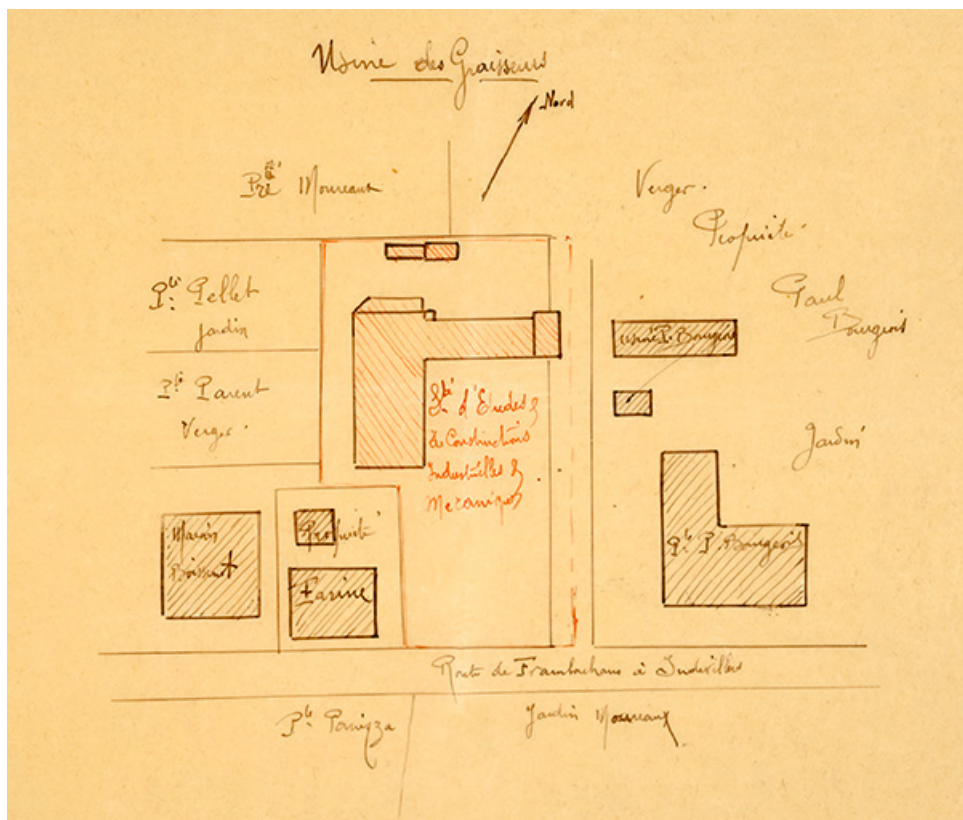 Usine des Graisseurs
Nord
Pté Moureaux
Verger.
Propriété
Paul
Bourgeois
Pté Pellet
Jardin
usine P. Bourgeois
Pté Parent
Verger.
Sté d'Etudes &
de Constructions
Industrielles &
Mécaniques
Jardin
Maison
Boissenot
Propriété
Farine
Pté P. Bourgeois
Route de Frambouhans à Indevillers
Pté Panizza
Jardin Moureaux